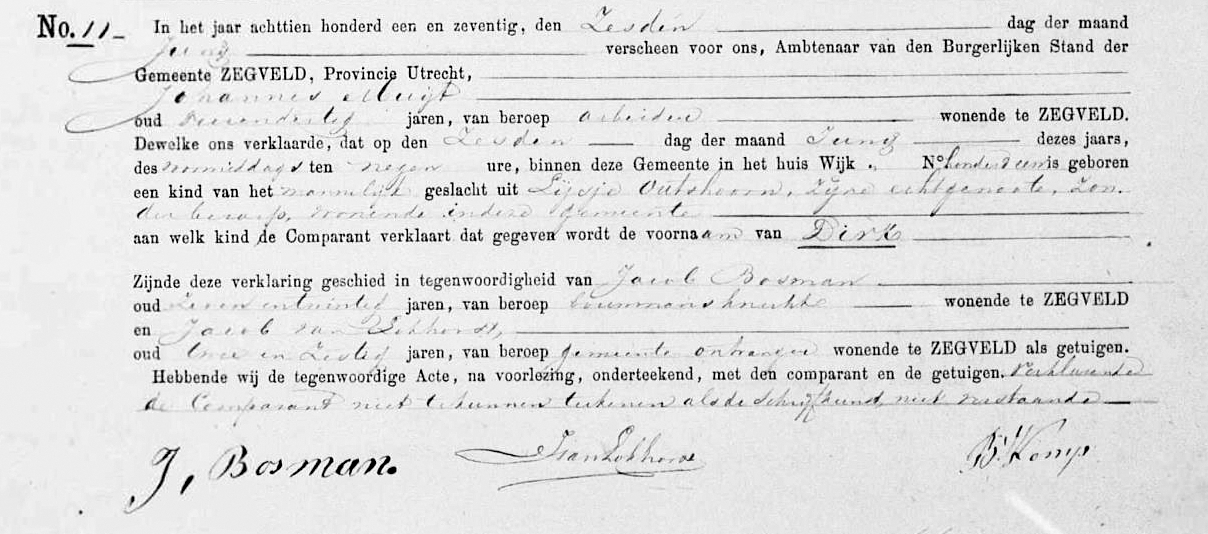 No. 11 In het jaar achttien honderd een en zeventig, den Zesden dag der maand
Junij verscheen voor ons, Ambtenaar van den Burgerlijken Stand der
Gemeente ZEGVELD, Provincie Utrecht,
Johannes Muijt
oud jaren, van beroep arbeider wonende te ZEGVELD.
Dewelke ons verklaarde, dat op den Zesden dag der maand Junij dezes jaars,
des voormiddags ten negen ure, binnen deze Gemeente in het huis Wijk . No. is geboren
een kind van het mannelijk geslacht uit Lijsje Outshoorn, zijne echtgenoote, zon-
der beroep, wonende in deze gemeente
aan welk kind de Comparant verklaart dat gegeven wordt de voornaam van Dirk
Zijnde deze verklaring geschied in tegenwoordigheid van Jacob Bosman
oud Zeven en twintig jaren, van beroep bouwmansknecht wonende te ZEGVELD
en Jacob van Lokhorst,
oud twee en Zestig jaren, van beroep gemeente ontvanger wonende te ZEGVELD als getuigen.
Hebbende wij de tegenwoordige Acte, na voorlezing, onderteekend, met den comparant en de getuigen. Verklarende
de Comparant niet te kunnen teekenen als de schrijfkunst niet verstaande
J, Bosman. JvanLokhorst B. Kemp